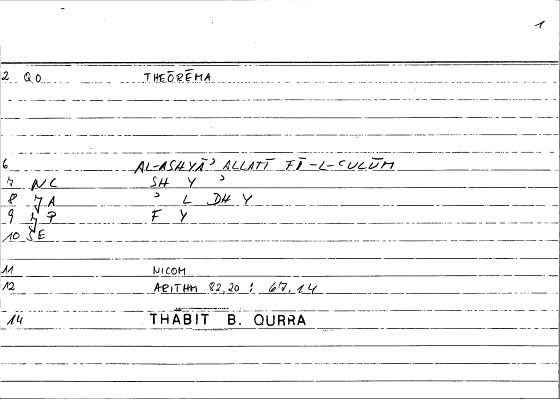 1
2 QO THEŌRĒMA
6 AL-ASHYĀʾ ALLATĪ FĪ-L-CULŪM
7 NC SH Y ʾ
8 JA ʾ L DH Y
9 JP F Y
10 SE
11 NICOM
12 ARITHM 82,20 : 67,14
14 THĀBIT B. QURRA